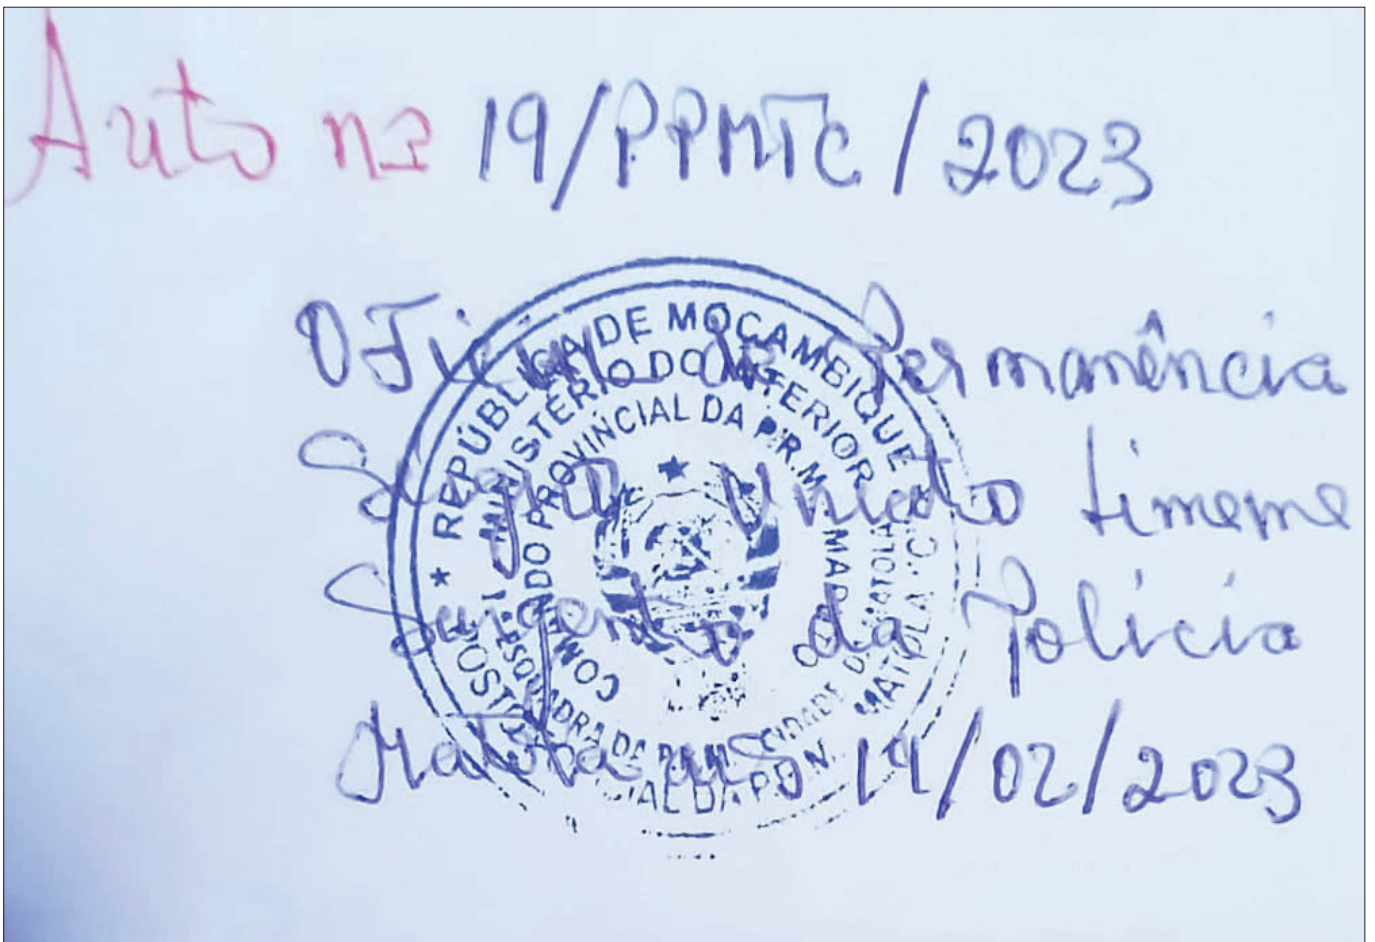 Auto nº 19/PPMTC/2023
Oficial de Permanência
Timeme
Sargento da Polícia
Matola aos 14/02/2023
REPÚBLICA DE MOÇAMBIQUE
MINISTÉRIO DO INTERIOR
COMANDO PROVINCIAL DA P.R.M. MAPUTO
ESQUADRA DA P.R.M. CIDADE DA MATOLA
MATOLA "C"